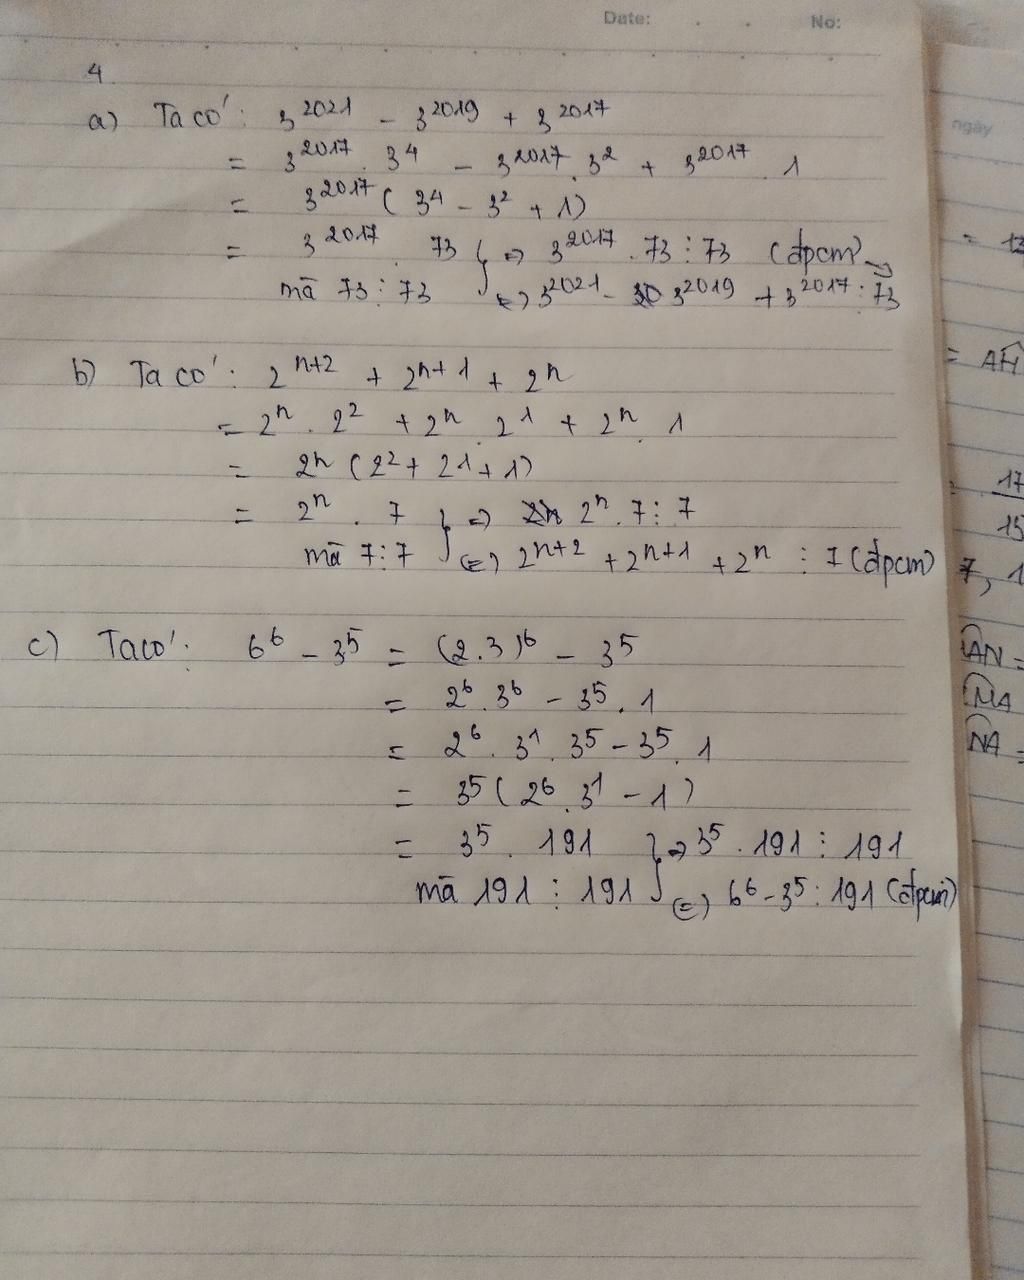 Date: . . No:
4
a) Ta có: 3^2021 - 3^2019 + 3^2017
= 3^2017 . 3^4 - 3^2017 . 3^2 + 3^2017 . 1
= 3^2017 ( 3^4 - 3^2 + 1)
= 3^2017 . 73 } => 3^2017 . 73 ⋮ 73 (đpcm)
mà 73 ⋮ 73 (=) 3^2021 - 3^2019 + 3^2017 ⋮ 73
b) Ta có: 2^n+2 + 2^n+1 + 2^n
= 2^n . 2^2 + 2^n . 2^1 + 2^n . 1
= 2^n (2^2 + 2^1 + 1)
= 2^n . 7 } => 2^n . 7 ⋮ 7
mà 7 ⋮ 7 (=) 2^n+2 + 2^n+1 + 2^n ⋮ 7 (đpcm)
c) Ta có: 6^6 - 3^5 = (2.3)^6 - 3^5
= 2^6 . 3^6 - 3^5 . 1
= 2^6 . 3^1 . 3^5 - 3^5 . 1
= 3^5 ( 2^6 . 3^1 - 1 )
= 3^5 . 191 } => 3^5 . 191 ⋮ 191
mà 191 ⋮ 191 (=) 6^6 - 3^5 ⋮ 191 (đpcm)
ngày
= AH
17
15
7, 1
AN =
MA
NA =